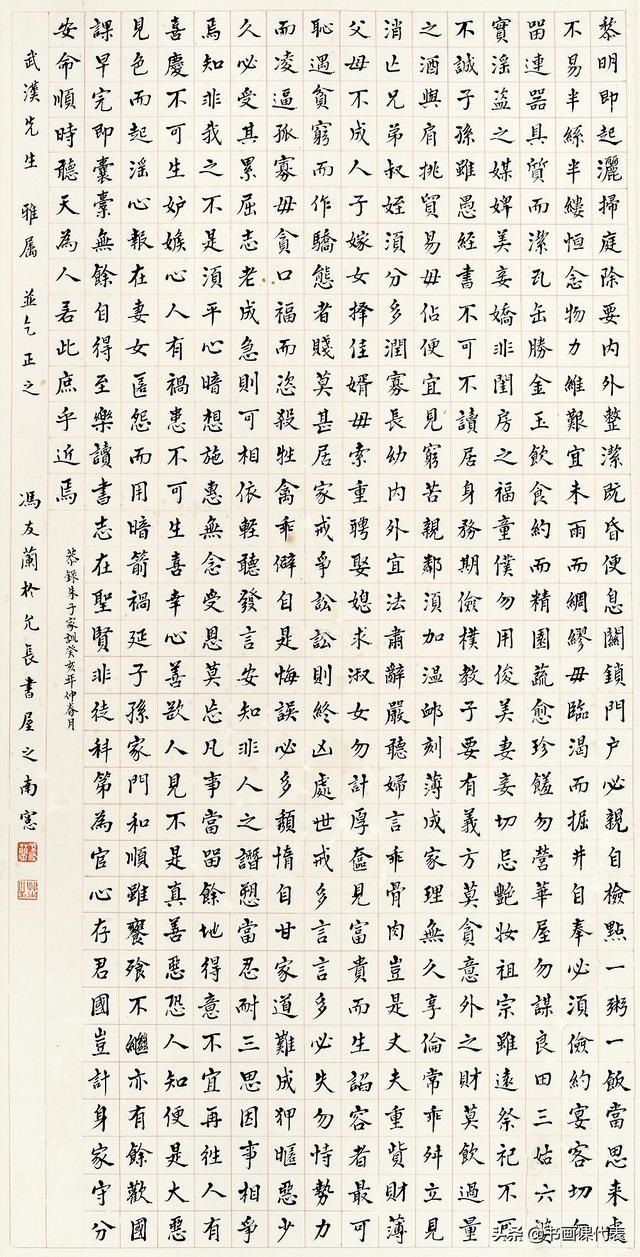 黎明即起灑掃庭除要内外整潔既昏便息關鎖門户必親自檢點一粥一飯當思来處
不易半絲半縷恒念物力維艱宜未雨而綢繆毋臨渴而掘井自奉必須儉約宴客切勿
畱連器具質而潔瓦缶勝金玉飲食約而精園蔬愈珍饈勿營華屋勿謀良田三姑六婆
實淫盗之媒婢美妾嬌非閨房之福童僕勿用俊美妻妾切忌艷妝祖宗雖遠祭祀不可
不誠子孫雖愚經書不可不讀居身務期儉樸教子要有義方莫貪意外之財莫飲過量
之酒與肩挑貿易毋佔便宜見窮苦親鄰須加温卹刻薄成家理無久享倫常乖舛立見
消亡兄弟叔姪須分多潤寡長幼内外宜法肅辭嚴聽婦言乖骨肉豈是丈夫重貲財薄
父母不成人子嫁女擇佳婿毋索重聘娶媳求淑女勿計厚奩見富貴而生諂容者最可
恥遇貧窮而作驕態者賤莫甚居家戒爭訟訟則終凶處世戒多言言多必失勿恃勢力
而凌逼孤寡毋貪口福而恣殺牲禽乖僻自是悔誤必多頹惰自甘家道難成狎暱惡少
久必受其累屈志老成急則可相依輕聽發言安知非人之譖愬當忍耐三思因事相爭
焉知非我之不是須平心暗想施惠無念受恩莫忘凡事當畱餘地得意不宜再往人有
喜慶不可生妒嫉心人有禍患不可生喜幸心善欲人見不是真善惡恐人知便是大惡
見色而起淫心報在妻女匿怨而用暗箭禍延子孫家門和順雖饔飧不繼亦有餘歡國
課早完即囊橐無餘自得至樂讀書志在聖賢非徒科第為官心存君國豈計身家守分
安命順時聽天為人若此庶乎近焉
恭錄朱子家訓癸亥年仲春月
武漢先生 雅属 並乞正之 馮友蘭於允長書屋之南窗
头条 @书画课代表